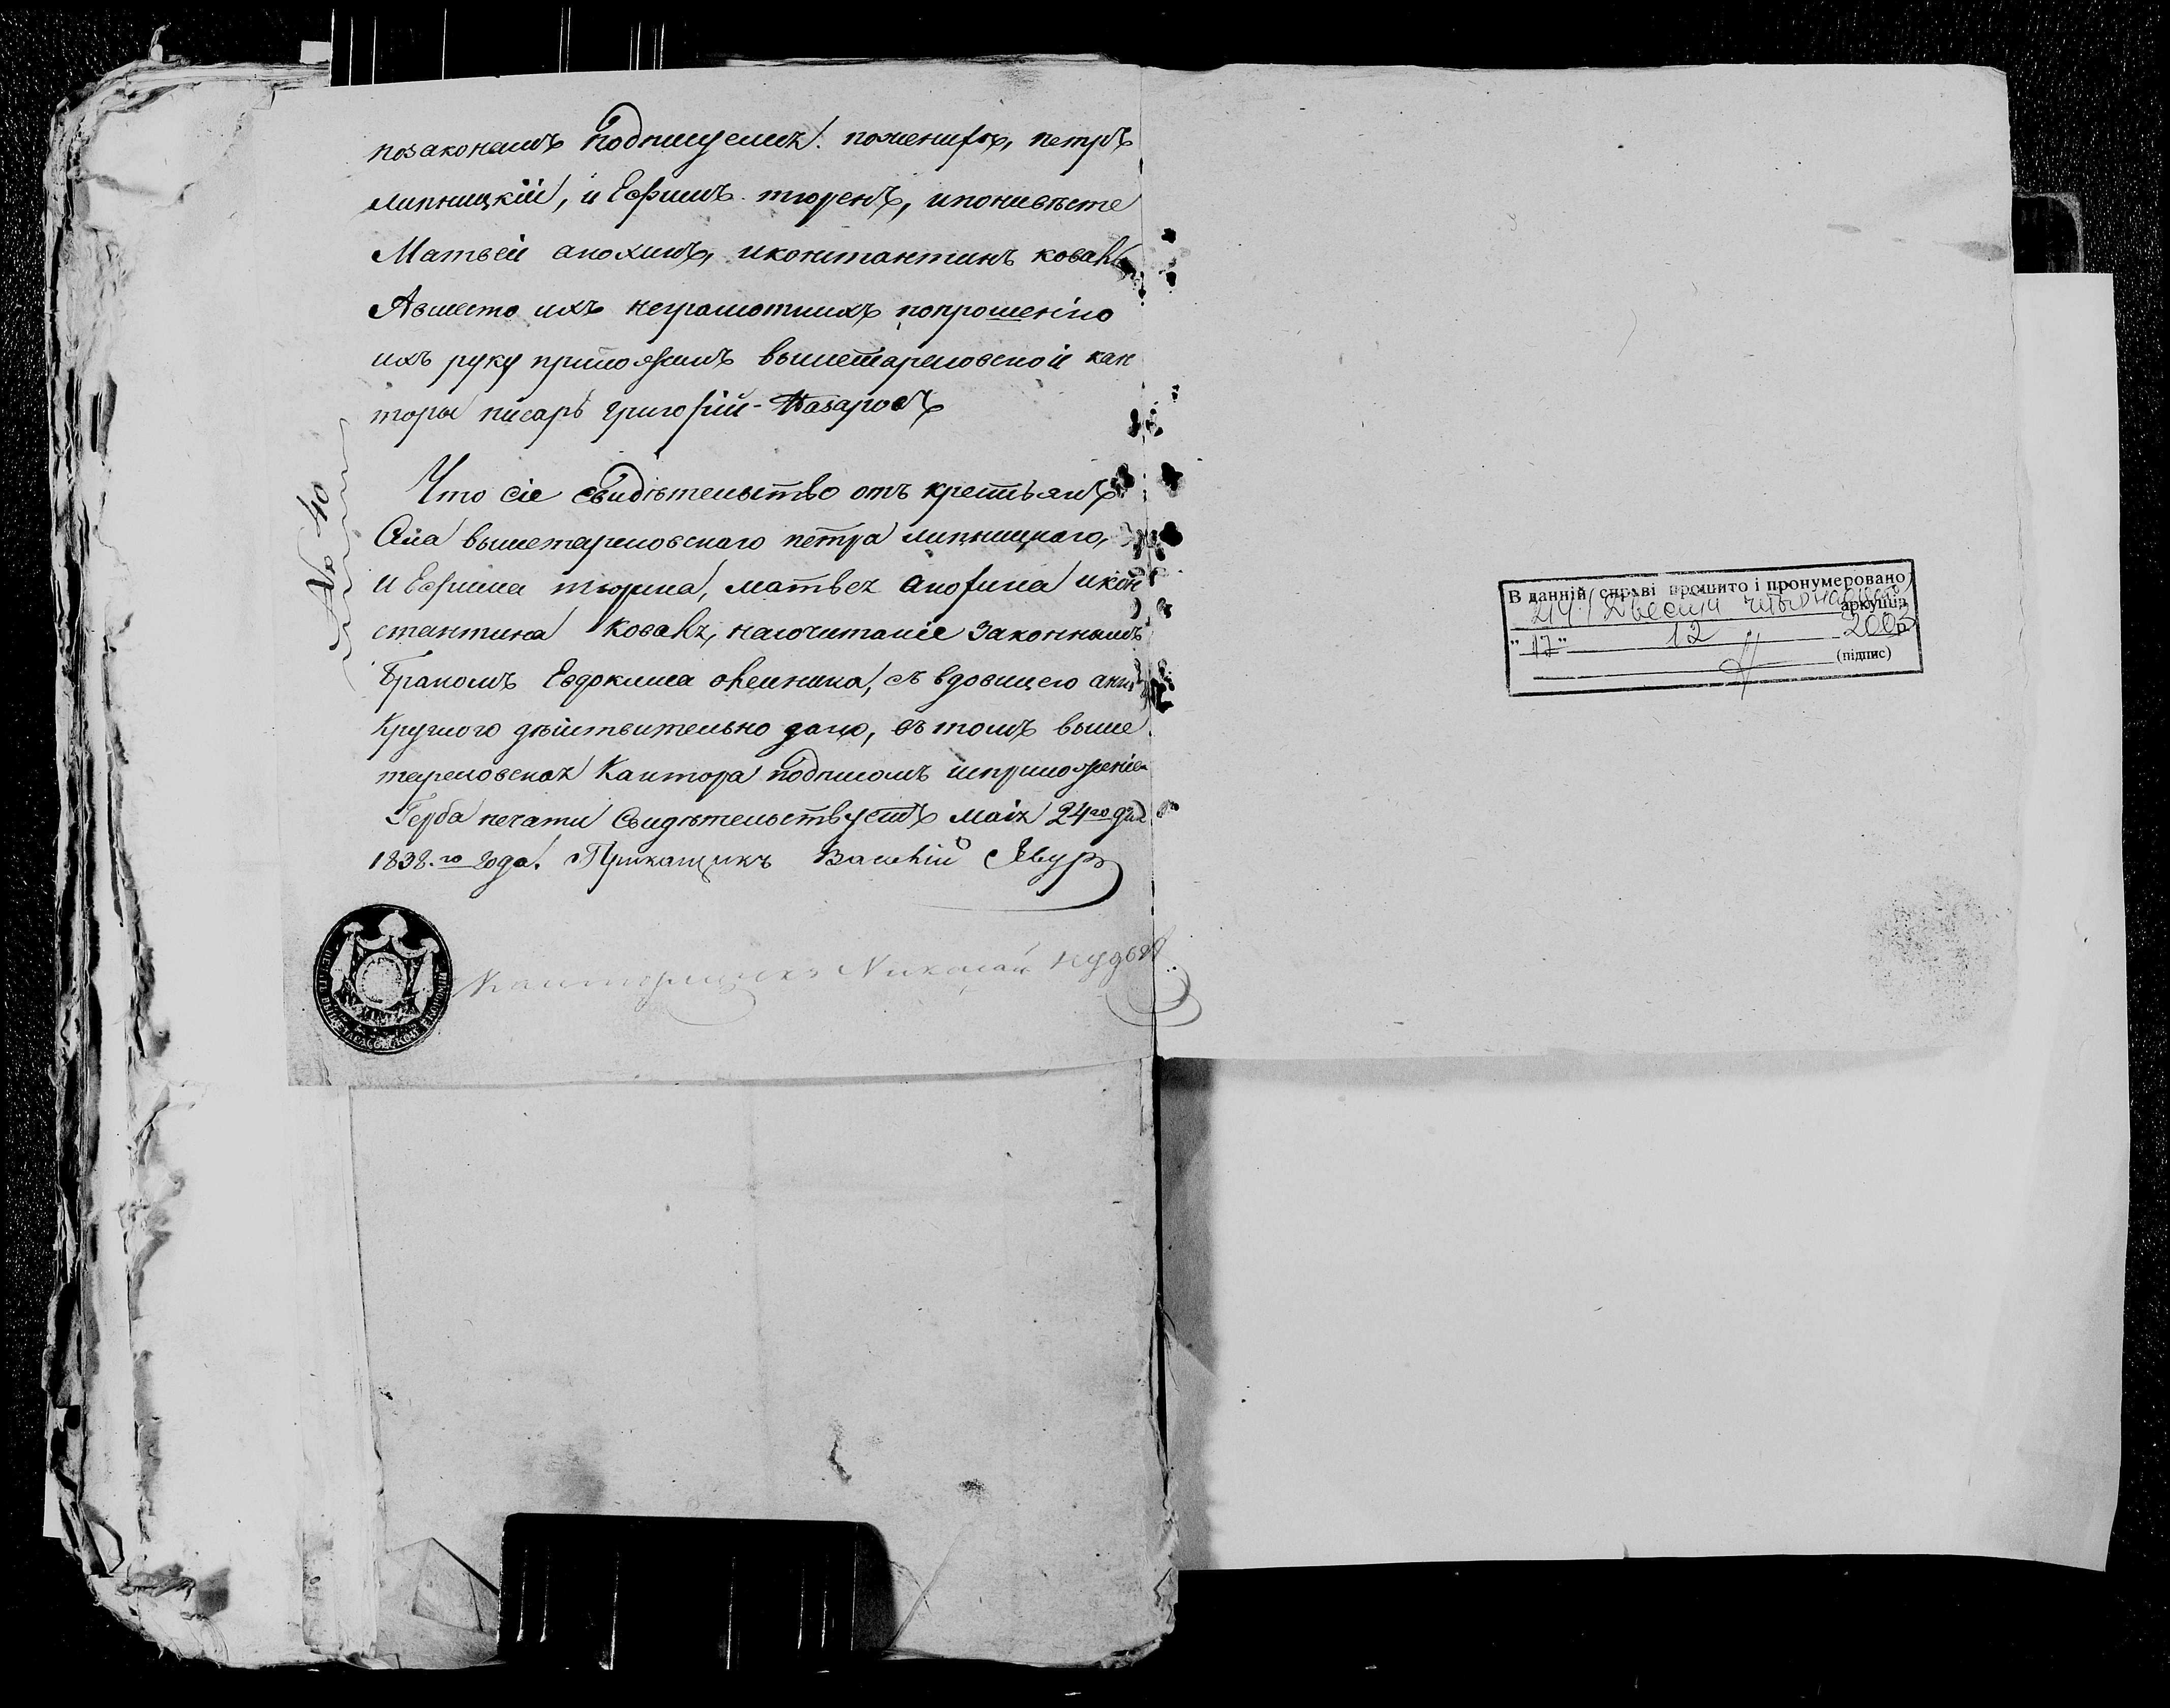 позаконамъ подпищемся. поженихѣ, петръ
липницкій, и Ефимъ тюренъ,ипоневѣсте
Матвей анохинъ, иконстантинъ коваль
Авместо ихъ неграмотныхъ попрошенію
ихъ руку приложилъ вышетарасовской кан
торы писарь григорій Назаровъ
№ 40
Что сіе свидѣтельство отъ крестьянъ
Села вышетарасовскаго петра липницкаго,
и Ефима тюрина, матвея анохина икон
стантина Коваля, насочитаніе законнымъ
Бракомъ Евдокима съ вдовицею
Круглою дѣйствительно дано, въ томъ выше
тарасовская Кантора подписомъ иприложеніем
Герба печати Свидѣтельствуетъ маія 24го дня
1838.го года. Прикащикъ Василій Явур
Канторщикъ Николай
ПЕЧАТЬ ВЫШЕТАРАСОВСКОЙ ЕКОНОМІИ
В данній справі прошито і пронумеровано
214 / Двести четырнадцать /
аркушів
"17" 12 2003 р.
(підпис)